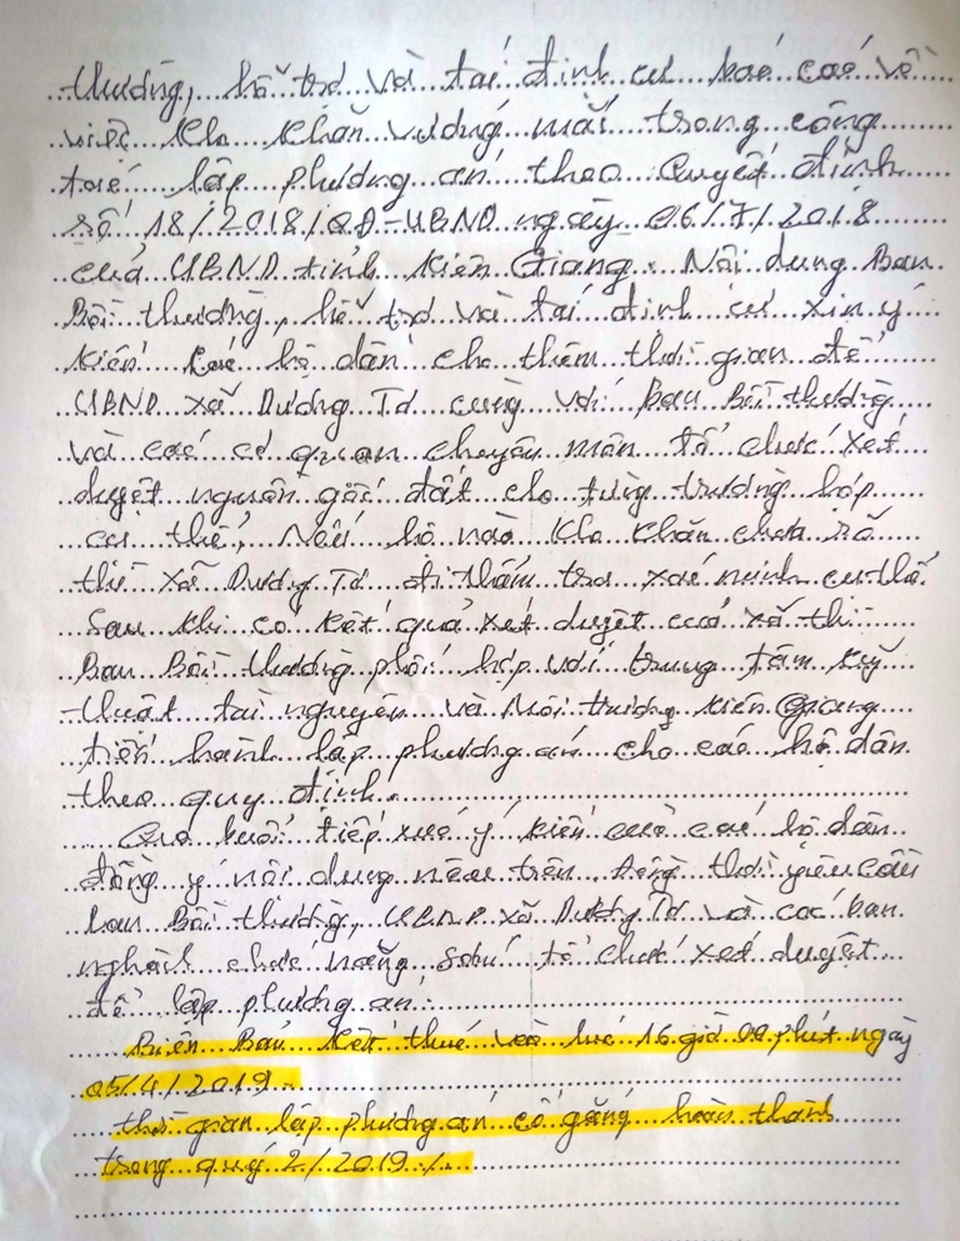 thường, hỗ trợ và tái định cư báo cáo về
việc khó khăn vướng mắc trong công
tác lập phương án theo Quyết định
số 18/2018/QĐ-UBND ngày 06/7/2018
của UBND tỉnh Kiên Giang. Nội dung Ban
Bồi thường, hỗ trợ và tái định cư xin ý
kiến các hộ dân cho thêm thời gian để
UBND xã Dương Tơ cùng với ban Bồi thường
và các cơ quan chuyên môn tổ chức xét
duyệt nguồn gốc đất cho từng trường hợp
cụ thể, Nếu hộ nào khó khăn chưa rõ
thì xã Dương Tơ đi thẩm tra xác minh cụ thể
Sau khi có kết quả xét duyệt của xã thì
Ban Bồi thường phối hợp với trung tâm kỹ
thuật tài nguyên và Môi trường Kiên Giang
tiến hành lập phương án cho các hộ dân
theo quy định.
Qua buổi tiếp xúc ý kiến của các hộ dân
đồng ý nội dung nêu trên, đồng thời yêu cầu
ban Bồi thường, UBND xã Dương Tơ và các ban
nghành chức năng sớm tổ chức xét duyệt
để lập phương án.
Biên Bản kết thúc vào lúc 16 giờ 00 phút ngày
05/4/2019.
thời gian lập phương án cố gắng hoàn thành
trong quý 2/2019./.